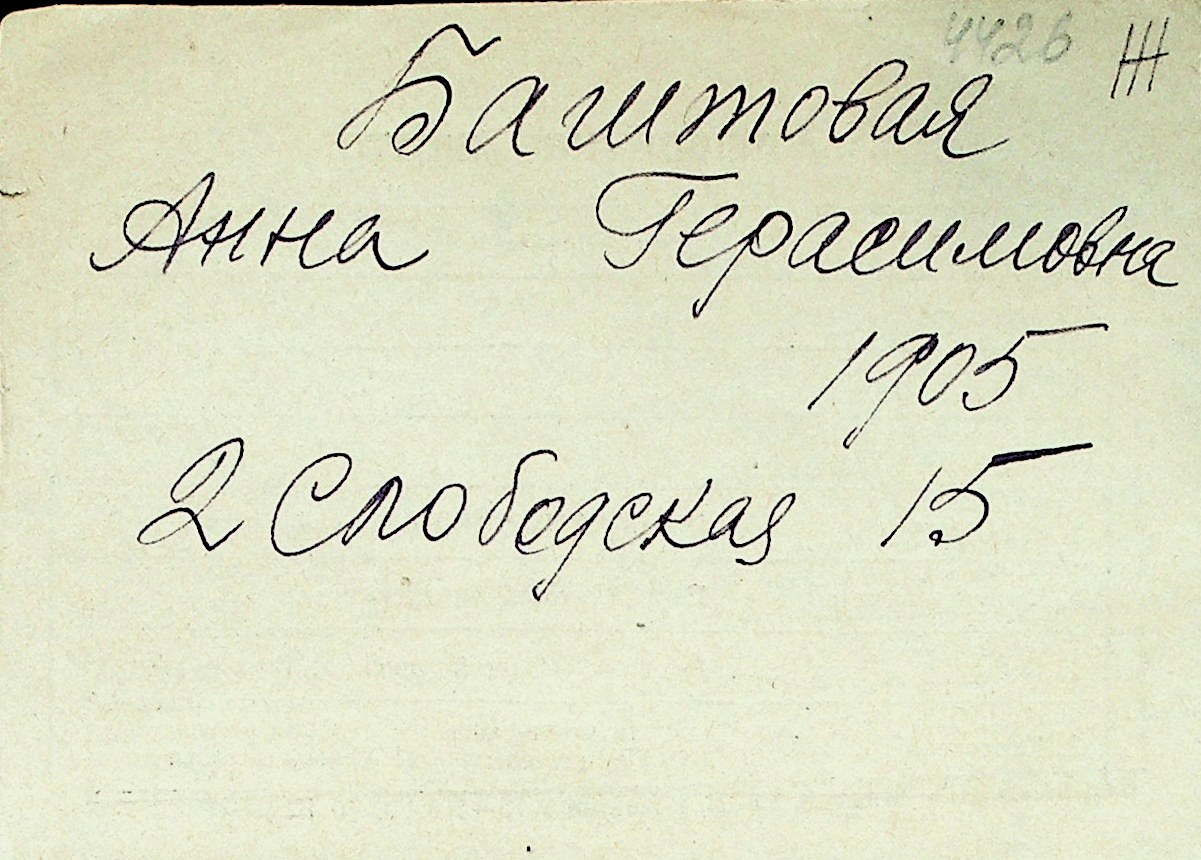 4426 Ж
Баштовая
Анна Герасимовна
1905
2 Слободская 15